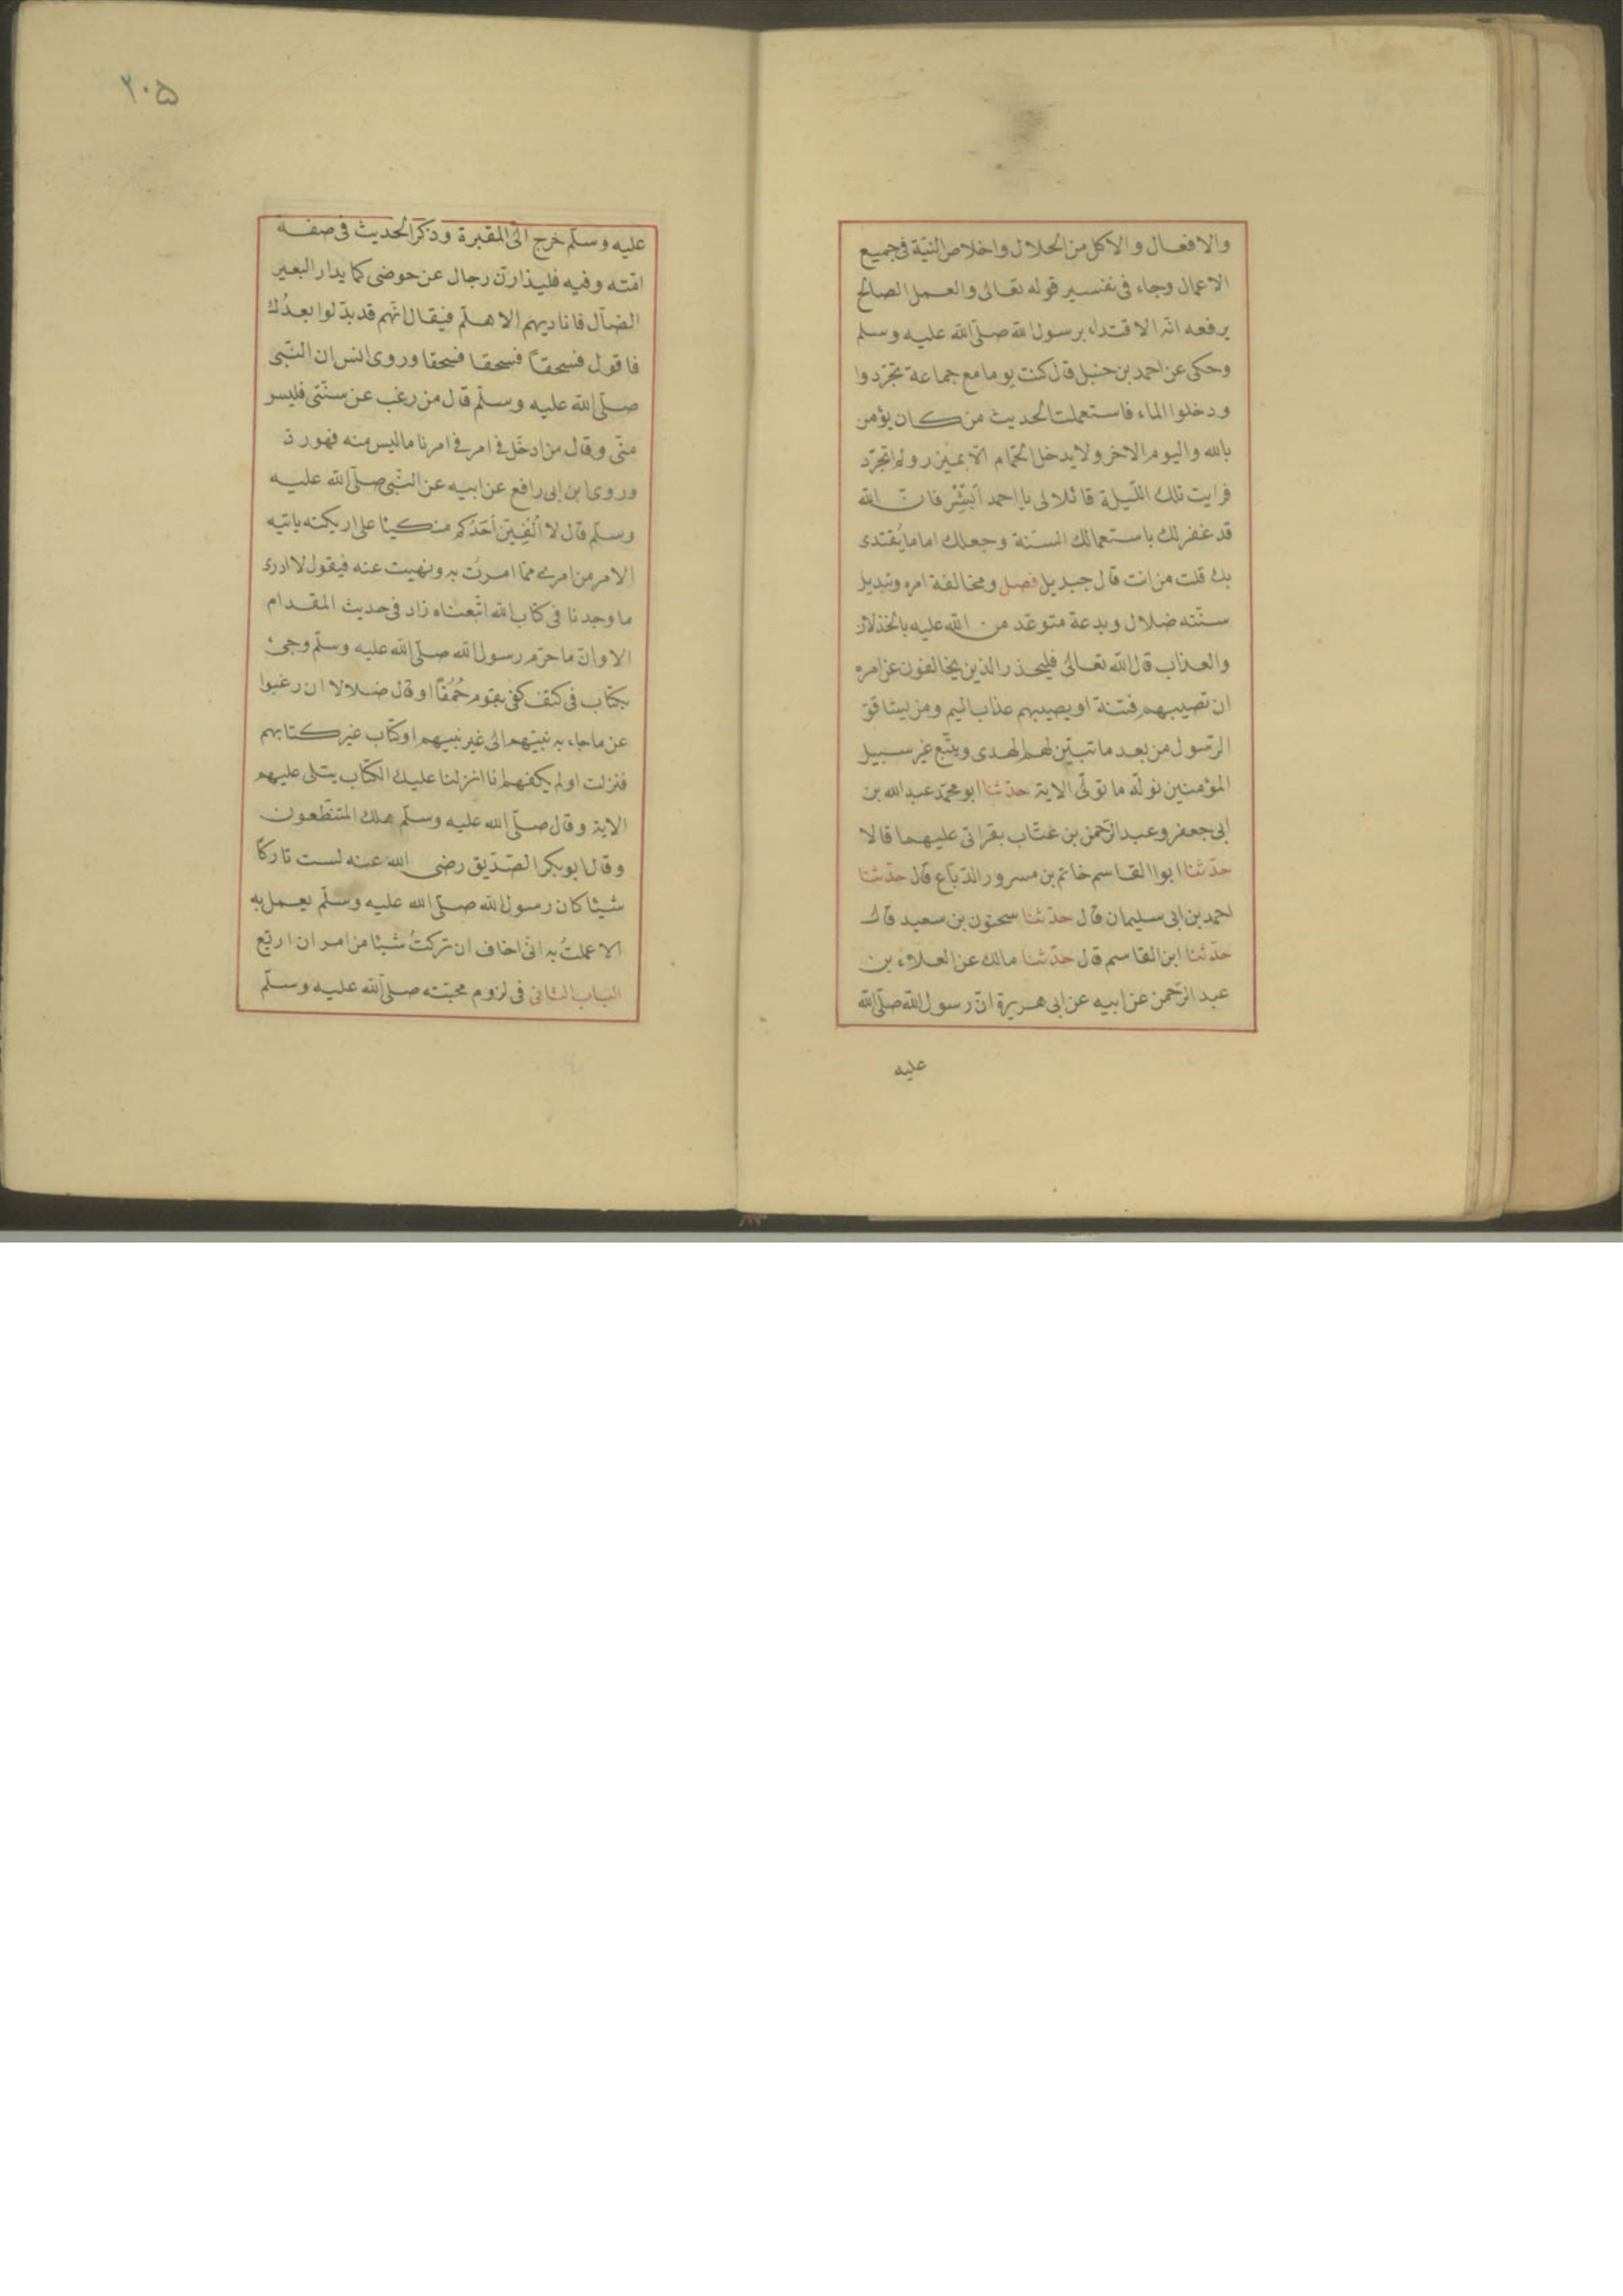 والافعال والاكل من الحلال واخلاص النيّة فى جميع
الاعمال وجاء فى تفسير قوله تعالى والعمل الصالح
يرفعه انه الاقتداء برسول الله صلّى الله عليه وسلم
وحكى عن احمد بن حنبل قال كنت يوما مع جماعة تجرّدوا
ودخلوا الماء فاستعملت الحديث من كان يؤمن
بالله واليوم الاخر ولا يدخل الحمّام الّا بمئزر ولم اتجرّد
فرايت تلك اللّيلة قائلا لى يا احمد اَبْشِرْ فانّ الله
قد غفر لك باستعمالك السنّة وجعلك اماما يُقتدى
بك قلت من انت قال جبريل فصل ومخالفة امره وتبديل
سنّته ضلال وبدعة متوعّد من الله عليه بالخذلان
والعذاب قال الله تعالى فليحذر الذين يخالفون عن امره
ان تصيبهم فتنة او يصيبهم عذاب اليم ومن يشاقق
الرّسول من بعد ما تبيّن لهم الهدى ويتّبع غير سبيل
المؤمنين نولّه ما تولّى الاية حدّثنا ابو محمّد عبد الله بن
ابى جعفر وعبد الرّحمن بن عتّاب بقراتى عليهما قالا
حدّثنا ابوا القاسم خاتم بن مسرور الدّباع قال حدّثنا
احمد بن ابى سليمان قال حدّثنا سحنون بن سعيد قال
حدّثنا ابن القاسم قال حدّثنا مالك عن العلاء بن
عبد الرّحمن عن ابيه عن ابى هريرة انّ رسول الله صلّى الله
عليه
٢٠۵
عليه وسلّم خرج الى المقبرة وذكر الحديث فى صفة
امّته وفيه فليذادنّ رجال عن حوضى كما يذاد البعير
الضّال فاناديهم الا هلمّ فيقال انّهم قد بدّلوا بعدُك
فاقول فسحقاً فسحقا فسحقا وروى انس ان النّبى
صلّى الله عليه وسلّم قال من رغب عن سنّتى فليس
منّى وقال من ادخل فى امر فى امرنا ما ليس منه فهو رد
وروى ابن ابى رافع عن ابيه عن النّبى صلّى الله عليه
وسلّم قال لا اُلْفِيَنّ اَحَدُكم متكيئا على اريكته ياتيه
الامر من امرى ممّا امرتُ به ونهيت عنه فيقول لا ادرى
ما وجدنا فى كتاب الله اتّبعناه زاد فى حديث المقدام
الا وانّ ما حرّم رسول الله صلّى الله عليه وسلّم وجئ
بكتاب فى كتف كفى بقوم حُمُقًا او قال ضلالا ان رغبوا
عن ما جاء به نبيّهم الى غير نبيهم او كتاب غير كتابهم
فنزلت اولم يكفهم انا انزلنا عليك الكتاب يتلى عليهم
الاية وقال صلّى الله عليه وسلّم هلك المتنطّعون
وقال ابو بكر الصّدّيق رضى الله عنه لست تاركاً
شيئا كان رسول الله صلّى الله عليه وسلّم يعمل به
الا عملتُ به انّى اخاف ان تركتُ شيئا من امر ان ازيغ
الباب الثانى فى لزوم محبّته صلّى الله عليه وسلّم